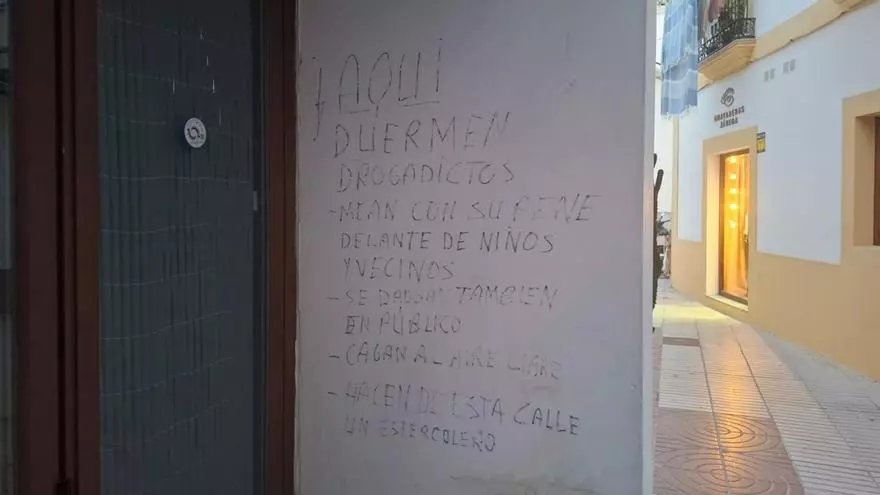 ¡AQUÍ
DUERMEN
DROGADICTOS
- MEAN CON SU PENE
DELANTE DE NIÑOS
Y VECINOS
- SE DROGAN TAMBIEN
EN PÚBLICO
- CAGAN AL AIRE LIBRE
- HACEN DE ESTA CALLE
UN ESTERCOLERO